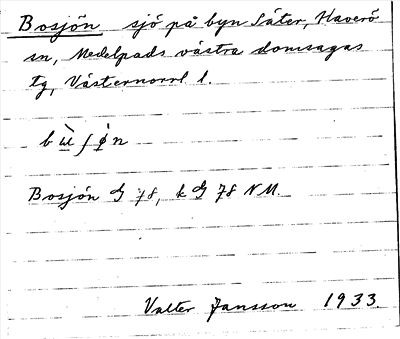 Bosjön sjö på byn Säter, Haverö
sn, Medelpads västra domsagas
tg, Västernorrl. l.
Bosjön G 78, k G 78 NM.
Valter Jansson 1933.